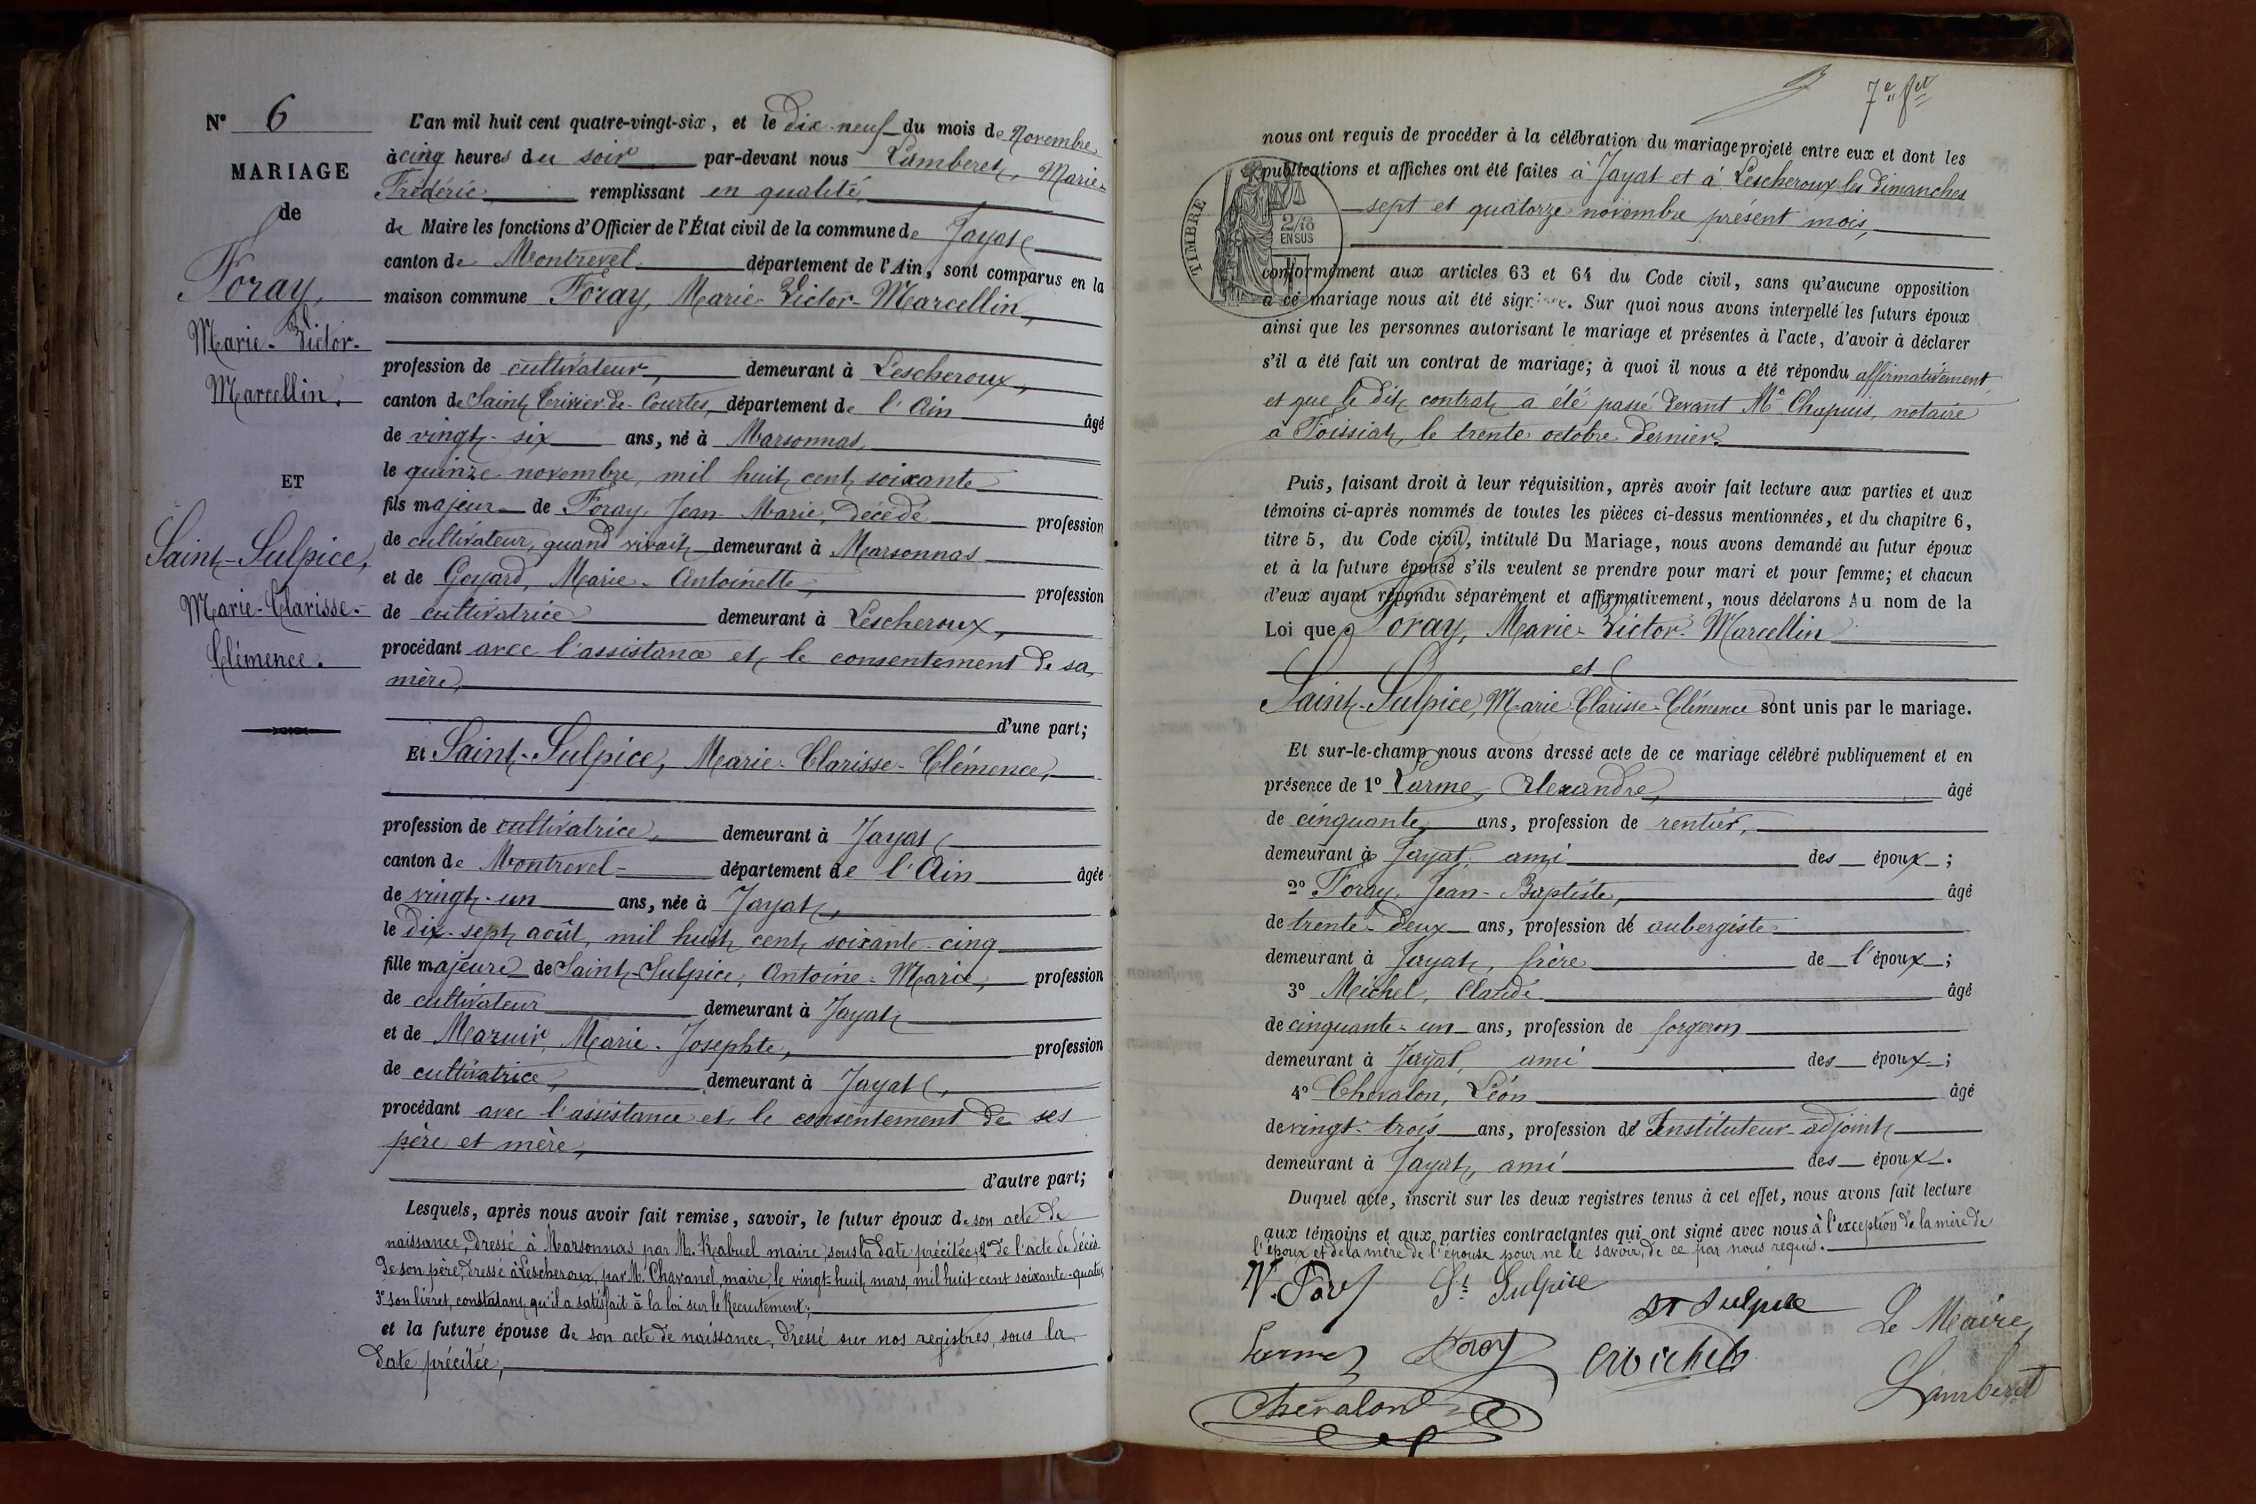 N° 6
MARIAGE
de
Foray,
Marie-Victor-
Marcellin.
ET
Saint-Sulpice,
Marie-Clarisse-
Clémence.
L'an mil huit cent quatre-vingt-six, et le dix-neuf du mois de Novembre
à cinq heures du soir par-devant nous Lamberet, Marie-
Frédéric, remplissant en qualité,
de Maire les fonctions d'Officier de l'État civil de la commune de Jayat
canton de Montrevel département de l'Ain, sont comparus en la
maison commune Foray, Marie-Victor-Marcellin,
profession de cultivateur, demeurant à Lescheroux,
canton de Saint Trivier-de-Courtes, département de l'Ain âgé
de vingt-six ans, né à Marsonnas
le quinze novembre, mil huit cent soixante
fils majeur de Foray, Jean-Marie, décédé profession
de cultivateur, quand vivait, demeurant à Marsonnas
et de Goyard, Marie-Antoinette, profession
de cultivatrice demeurant à Lescheroux,
procédant avec l'assistance et le consentement de sa
mère,
d'une part;
Et Saint-Sulpice, Marie-Clarisse-Clémence,
profession de cultivatrice, demeurant à Jayat
canton de Montrevel département de l'Ain âgée
de vingt-un ans, née à Jayat,
le dix-sept août, mil huit cent soixante-cinq
fille majeure de Saint-Sulpice, Antoine-Marie, profession
de cultivateur demeurant à Jayat
et de Mazuir, Marie-Josephte, profession
de cultivatrice, demeurant à Jayat,
procédant avec l'assistance et le consentement de ses
père et mère,
d'autre part;
Lesquels, après nous avoir fait remise, savoir, le futur époux de son acte de
naissance, dressé à Marsonnas par M. Rabuel maire, sous la date précitée; 2° de l'acte de décès
de son père, dressé à Lescheroux, par M. Chavanel, maire, le vingt-huit mars, mil huit cent soixante-quatre,
3° son livret, constatant qu'il a satisfait à la loi sur le Recrutement;
et la future épouse de son acte de naissance, dressé sur nos registres, sous la
date précitée,
7e fet
nous ont requis de procéder à la célébration du mariage projeté entre eux et dont les
publications et affiches ont été faites à Jayat et à Lescheroux les dimanches
sept et quatorze novembre présent mois,
TIMBRE
2/10
EN SUS
conformément aux articles 63 et 64 du Code civil, sans qu'aucune opposition
à ce mariage nous ait été signifiée. Sur quoi nous avons interpellé les futurs époux
ainsi que les personnes autorisant le mariage et présentes à l'acte, d'avoir à déclarer
s'il a été fait un contrat de mariage; à quoi il nous a été répondu affirmativement
et que le dit contrat a été passé devant Me Chapuis, notaire
à Foissiat, le trente octobre dernier.
Puis, faisant droit à leur réquisition, après avoir fait lecture aux parties et aux
témoins ci-après nommés de toutes les pièces ci-dessus mentionnées, et du chapitre 6,
titre 5, du Code civil, intitulé Du Mariage, nous avons demandé au futur époux
et à la future épouse s'ils veulent se prendre pour mari et pour femme; et chacun
d'eux ayant répondu séparément et affirmativement, nous déclarons Au nom de la
Loi que Foray, Marie-Victor-Marcellin
et
Saint-Sulpice, Marie-Clarisse-Clémence sont unis par le mariage.
Et sur-le-champ nous avons dressé acte de ce mariage célébré publiquement et en
présence de 1° Carme, Alexandre, âgé
de cinquante, ans, profession de rentier,
demeurant à Jayat, ami des époux;
2° Foray, Jean-Baptiste, âgé
de trente-deux ans, profession de aubergiste
demeurant à Jayat, frère de l'époux;
3° Michel, Claude âgé
de cinquante-un ans, profession de forgeron
demeurant à Jayat, ami des époux;
4° Chevalon, Léon âgé
de vingt-trois ans, profession de Instituteur-adjoint
demeurant à Jayat, ami des époux.
Duquel acte, inscrit sur les deux registres tenus à cet effet, nous avons fait lecture
aux témoins et aux parties contractantes qui ont signé avec nous à l'exception de la mère de
l'époux et de la mère de l'épouse pour ne le savoir, de ce par nous requis.
V. Foray St Sulpice
St Sulpice Le Maire,
Foray Michel
Lamberet
Chevalon